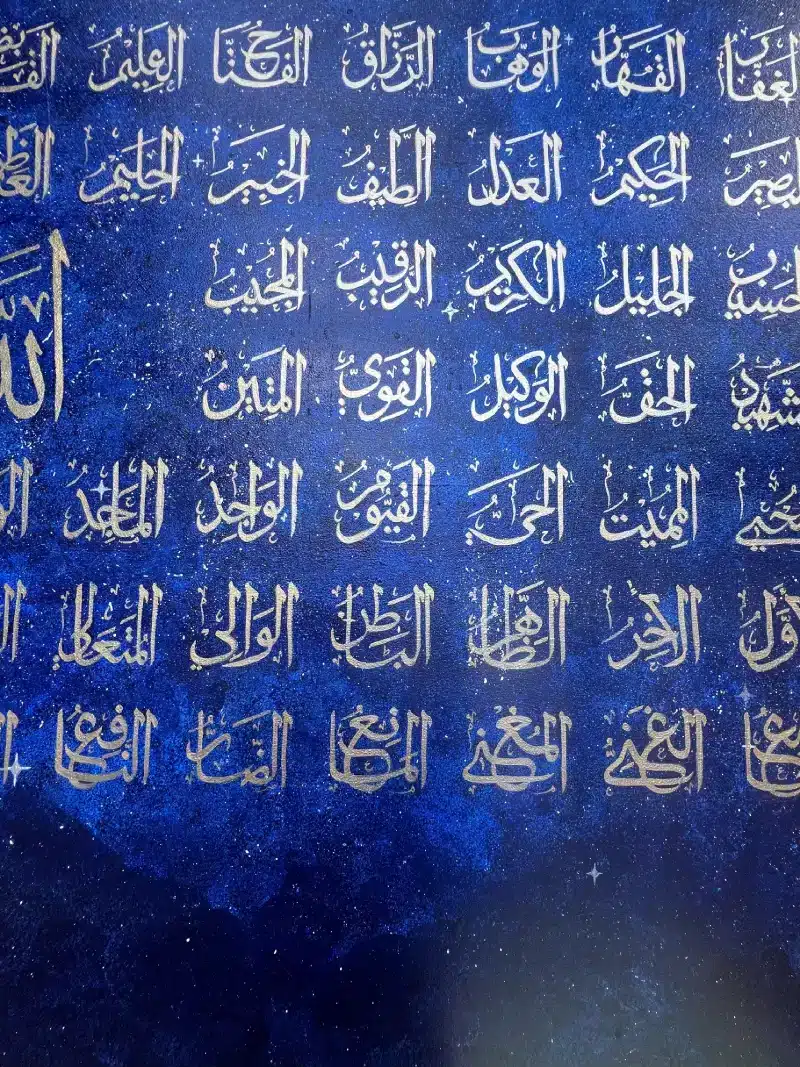 لغَفَّارُ القَهَّارُ الوَهَّابُ الرَّزَّاقُ الفَتَّاحُ العَلِيمُ القَابِضُ
لبَصِيرُ الحَكِيمُ العَدْلُ اللَّطِيفُ الخَبِيرُ الحَلِيمُ العَظِيمُ
الجَلِيلُ الكَرِيمُ الرَّقِيبُ المُجِيبُ
شَّهِيدُ الحَقُّ الوَكِيلُ القَوِيُّ المَتِينُ
الله
حْيِي المُمِيتُ الحَيُّ القَيُّومُ الوَاجِدُ المَاجِدُ
لأَوَّلُ الآخِرُ الظَّاهِرُ البَاطِنُ الوَالِي المُتَعَالِ
الغَنِيُّ المُغْنِي المَانِعُ الضَّارُّ النَّافِعُ